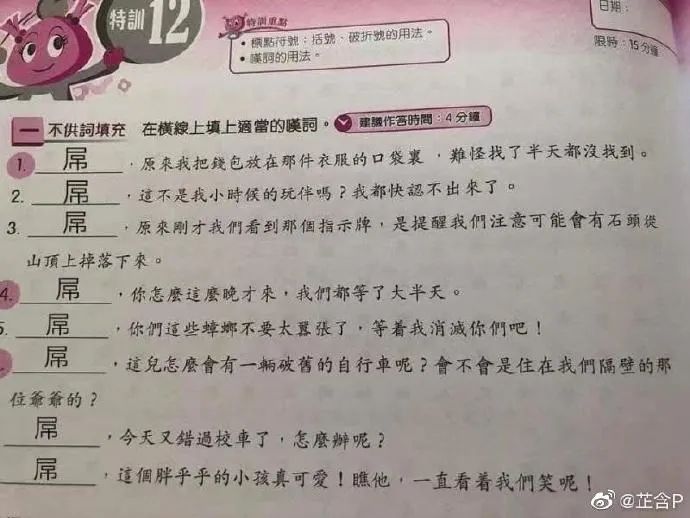 特訓 12
特訓重點
• 標點符號：括號、破折號的用法。
• 嘆詞的用法。
日期：
限時：15分鐘
一 不供詞填充 在橫線上填上適當的嘆詞。 建議作答時間：4分鐘
1. 屌，原來我把錢包放在那件衣服的口袋裏，難怪找了半天都沒找到。
2. 屌，這不是我小時候的玩伴嗎？我都快認不出來了。
3. 屌，原來剛才我們看到那個指示牌，是提醒我們注意可能會有石頭從
山頂上掉落下來。
4. 屌，你怎麼這麼晚才來，我們都等了大半天。
5. 屌，你們這些蟑螂不要太囂張了，等着我消滅你們吧！
屌，這兒怎麼會有一輛破舊的自行車呢？會不會是住在我們隔壁的那
位爺爺的？
屌，今天又錯過校車了，怎麼辦呢？
屌，這個胖乎乎的小孩真可愛！瞧他，一直看着我們笑呢！
@芷含P